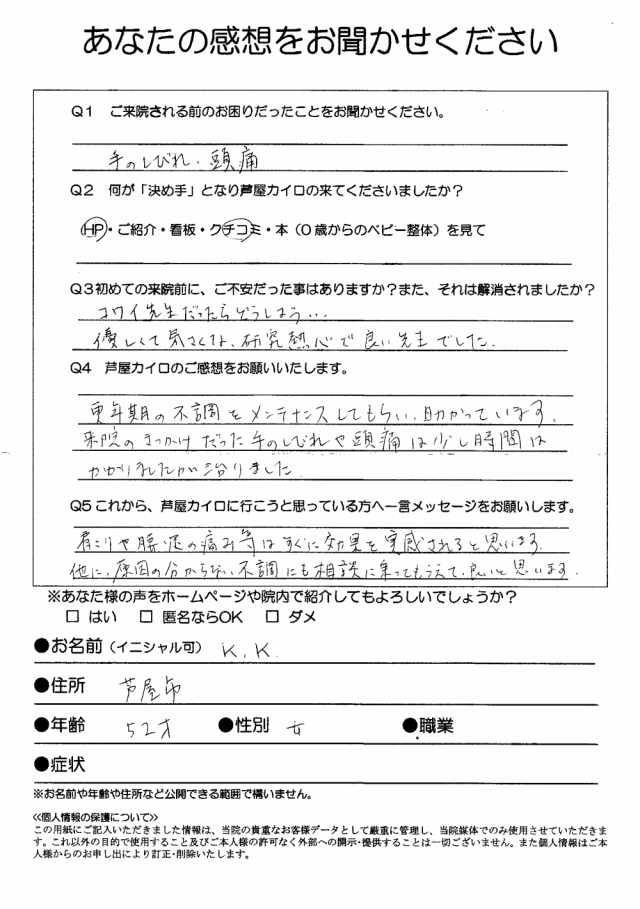 あなたの感想をお聞かせください
Q1 ご来院される前のお困りだったことをお聞かせください。
手のしびれ、頭痛
Q2 何が「決め手」となり芦屋カイロの来てくださいましたか？
HP・ご紹介・看板・クチコミ・本（0歳からのベビー整体）を見て
Q3初めての来院前に、ご不安だった事はありますか？また、それは解消されましたか？
コワイ先生だったらどうしよう…
優しくて気さくな、研究熱心で良い先生でした。
Q4 芦屋カイロのご感想をお願いいたします。
更年期の不調をメンテナンスしてもらい、助かっています。
来院のきっかけだった手のしびれや頭痛は少し時間は
かかりましたが治りました
Q5これから、芦屋カイロに行こうと思っている方へ一言メッセージをお願いします。
肩こりや腰・足の痛み等はすぐに効果を実感されると思います。
他に、原因の分からない不調にも相談に乗ってもらえて、良いと思います。
※あなた様の声をホームページや院内で紹介してもよろしいでしょうか？
□ はい □ 匿名ならOK □ ダメ
●お名前（イニシャル可） K.K.
●住所 芦屋市
●年齢 52才 ●性別 女 ●職業
●症状
※お名前や年齢や住所など公開できる範囲で構いません。
≪個人情報の保護について≫
この用紙にご記入いただきました情報は、当院の貴重なお客様データとして厳重に管理し、当院媒体でのみ使用させていただきま
す。これ以外の目的で使用すること及びご本人様の許可なく外部への開示・提供することは一切ございません。また個人情報はご本
人様からのお申し出により訂正・削除いたします。